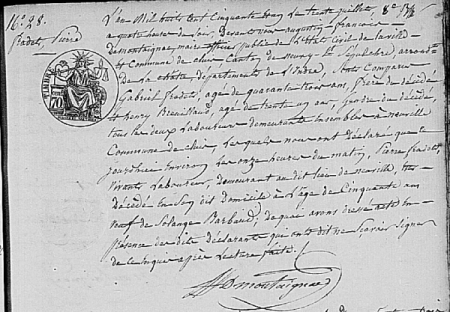 N.° 38.
Fradet, Pierre
L'an mil huit cent cinquante deux, le trente juillet,
à quatre heures de soir, devant nous augustin, françois
Demontaignac, maire officier public de l'état civil de la ville
et Commune de Cluis, Canton de neuvy St Sépulchre arrond.t
de La Châtre, département de l'indre, sont Comparus
Gabriel fradet, agé de quarante trois ans, frère du décédé
et henry Breuillaud, agé de trente un ans, Gendre du décédé,
tous les deux Laboureurs demeurants ensembles à
Commune de Cluis, les quels nous ont déclaré que le
jour d'hier environ les onze heures du matin, Pierre fradet,
vivant Laboureur, demeurant au dit lieu de est
décédé en son dit domicile à l'âge de Cinquante
neuf de Solange Barbaud, de quoi avons dressé acte en
présence des dits déclarants qui ont dit ne Scavoir Signer
de ce enquis après Lecture faite.
Demontaignac